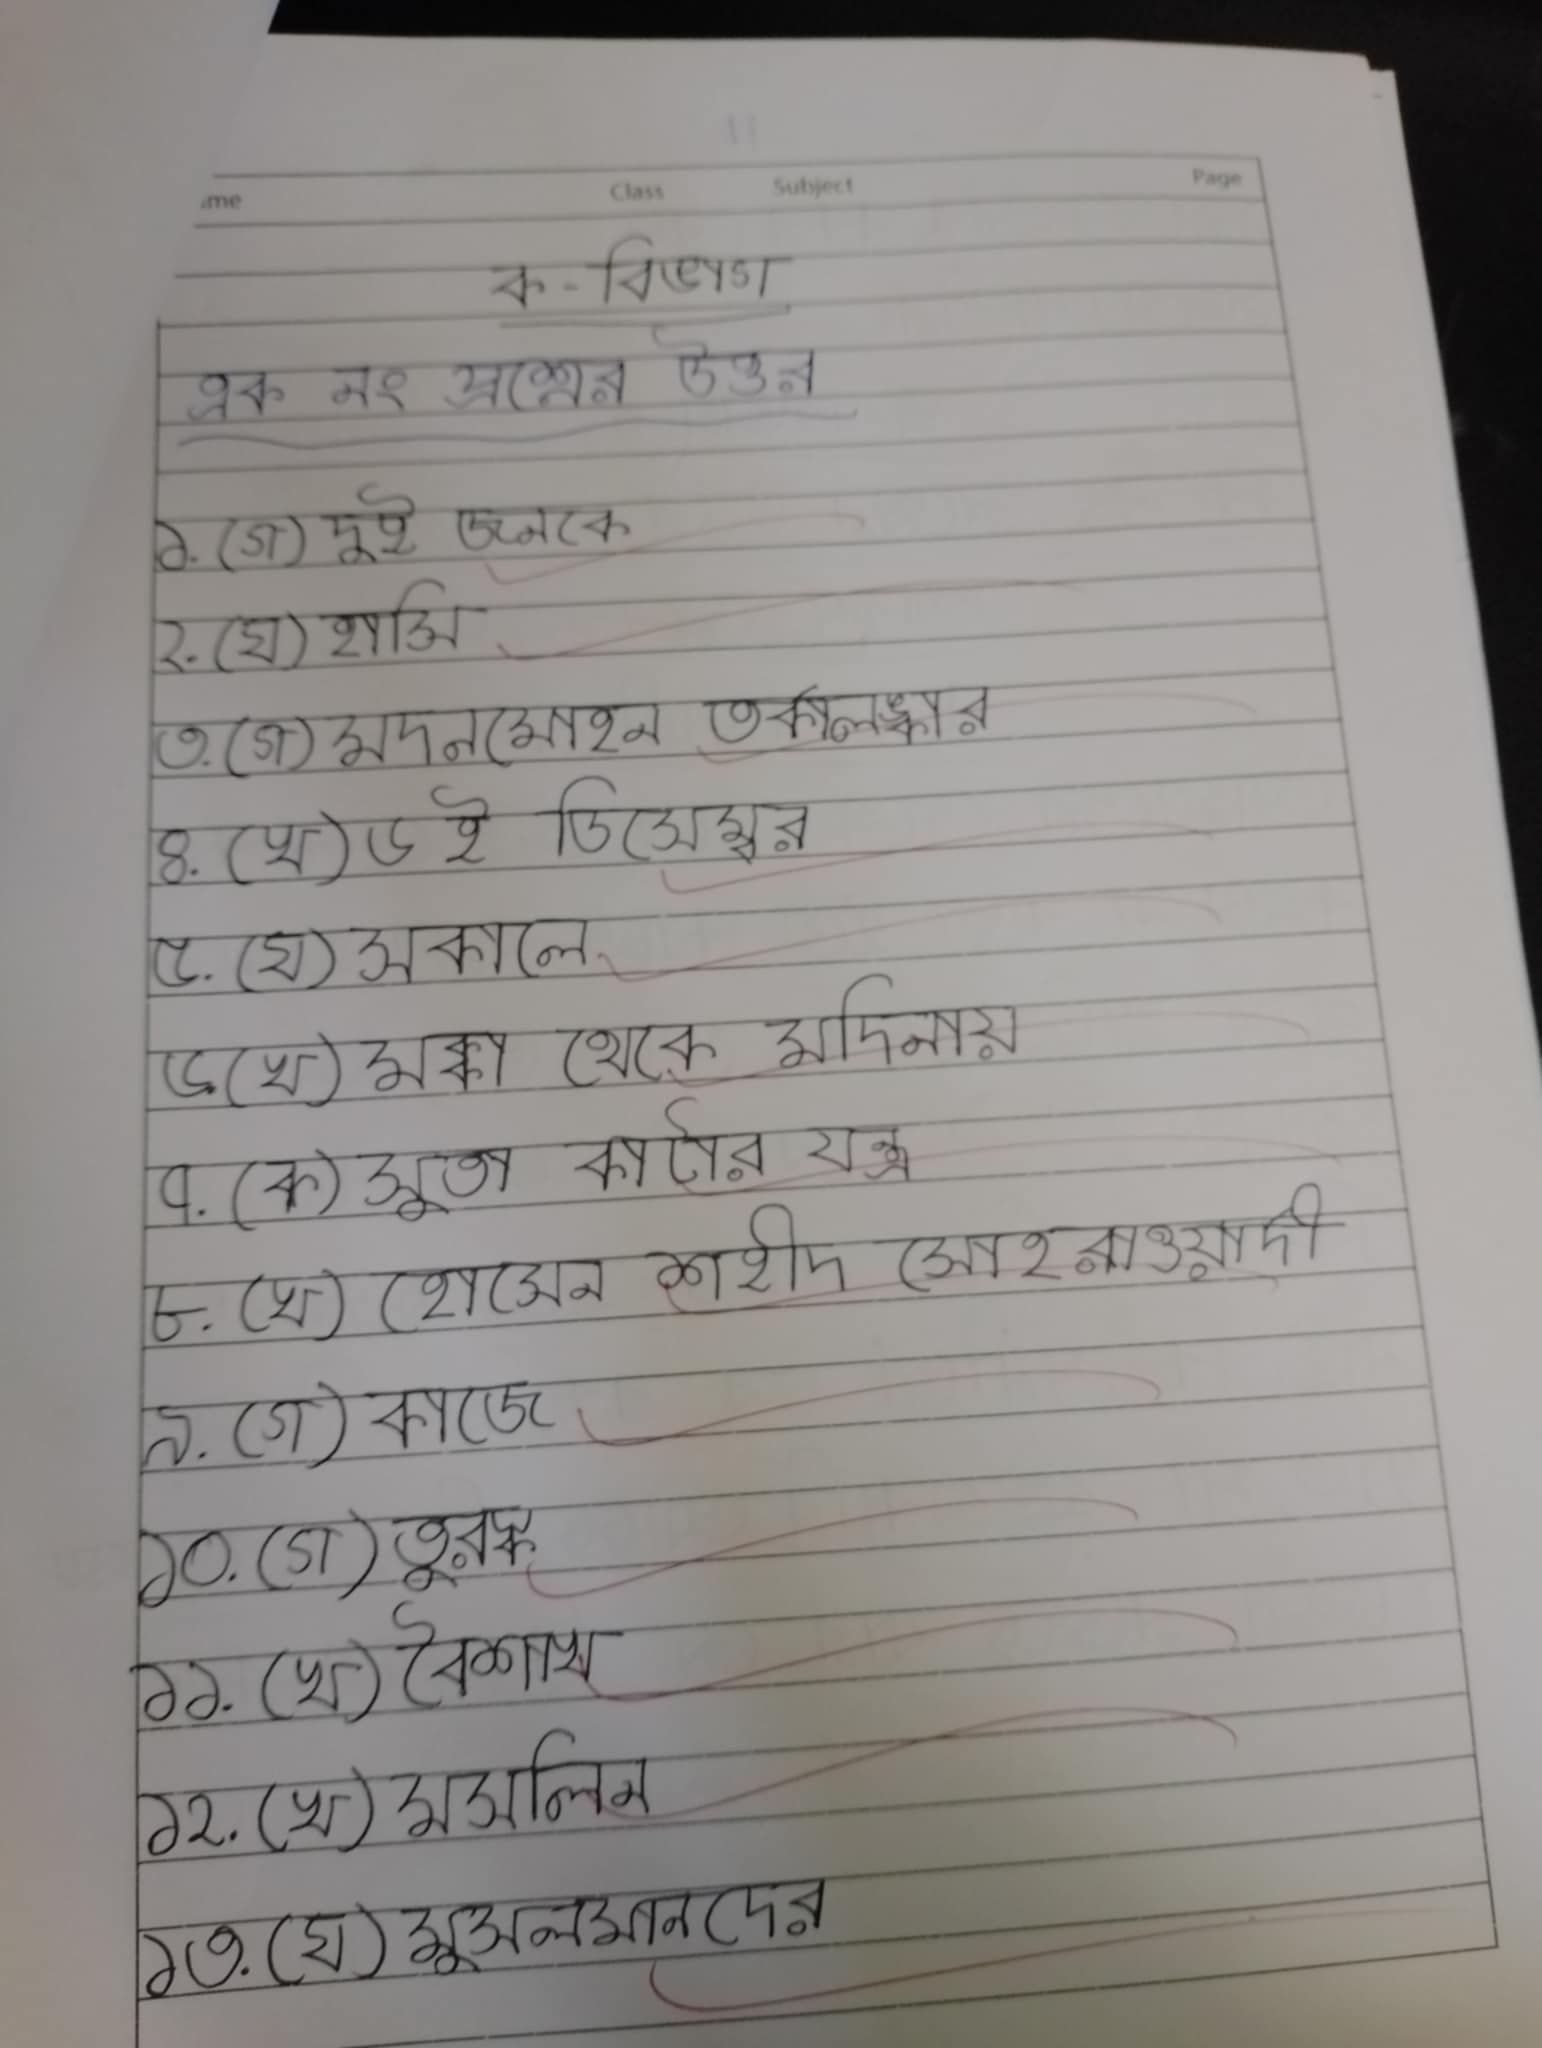 me Class Subject Page
ক - বিভাগ
এক নং প্রশ্নের উত্তর
১. (গ) দুই জনকে
২. (ঘ) হাসি
৩. (গ) মদনমোহন তর্কালঙ্কার
৪. (খ) ৬ ই ডিসেম্বর
৫. (ঘ) সকালে
৬ (খ) মক্কা থেকে মদিনায়
৭. (ক) সুতা কাটার যন্ত্র
৮. (খ) হোসেন শহীদ সোহরাওয়াদী
৯. (গ) কাজে
১০. (গ) তুরস্ক
১১. (খ) বৈশাখ
১২. (খ) মসলিন
১৩. (ঘ) মুসলমানদের